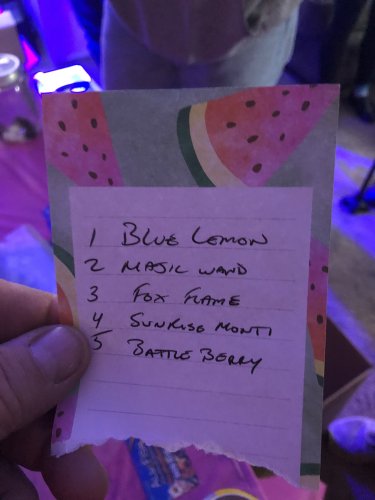 1 Blue Lemon
2 Majic wand
3 Fox Flame
4 Sunrise Monti
5 Battle Berry